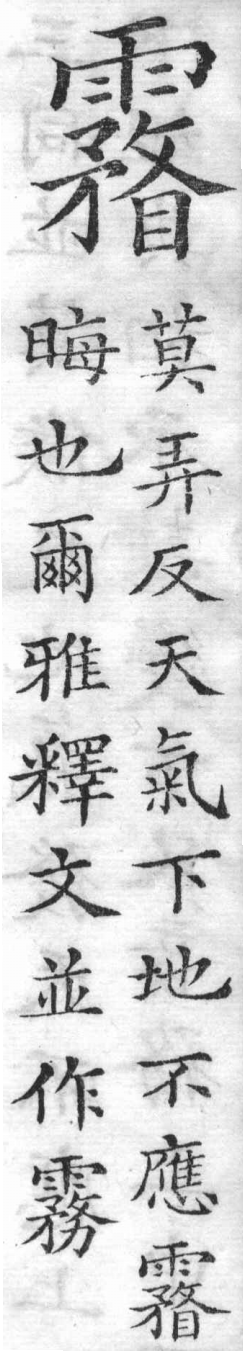 霿
莫弄反天氣下地不應霿
晦也爾雅釋文並作霧